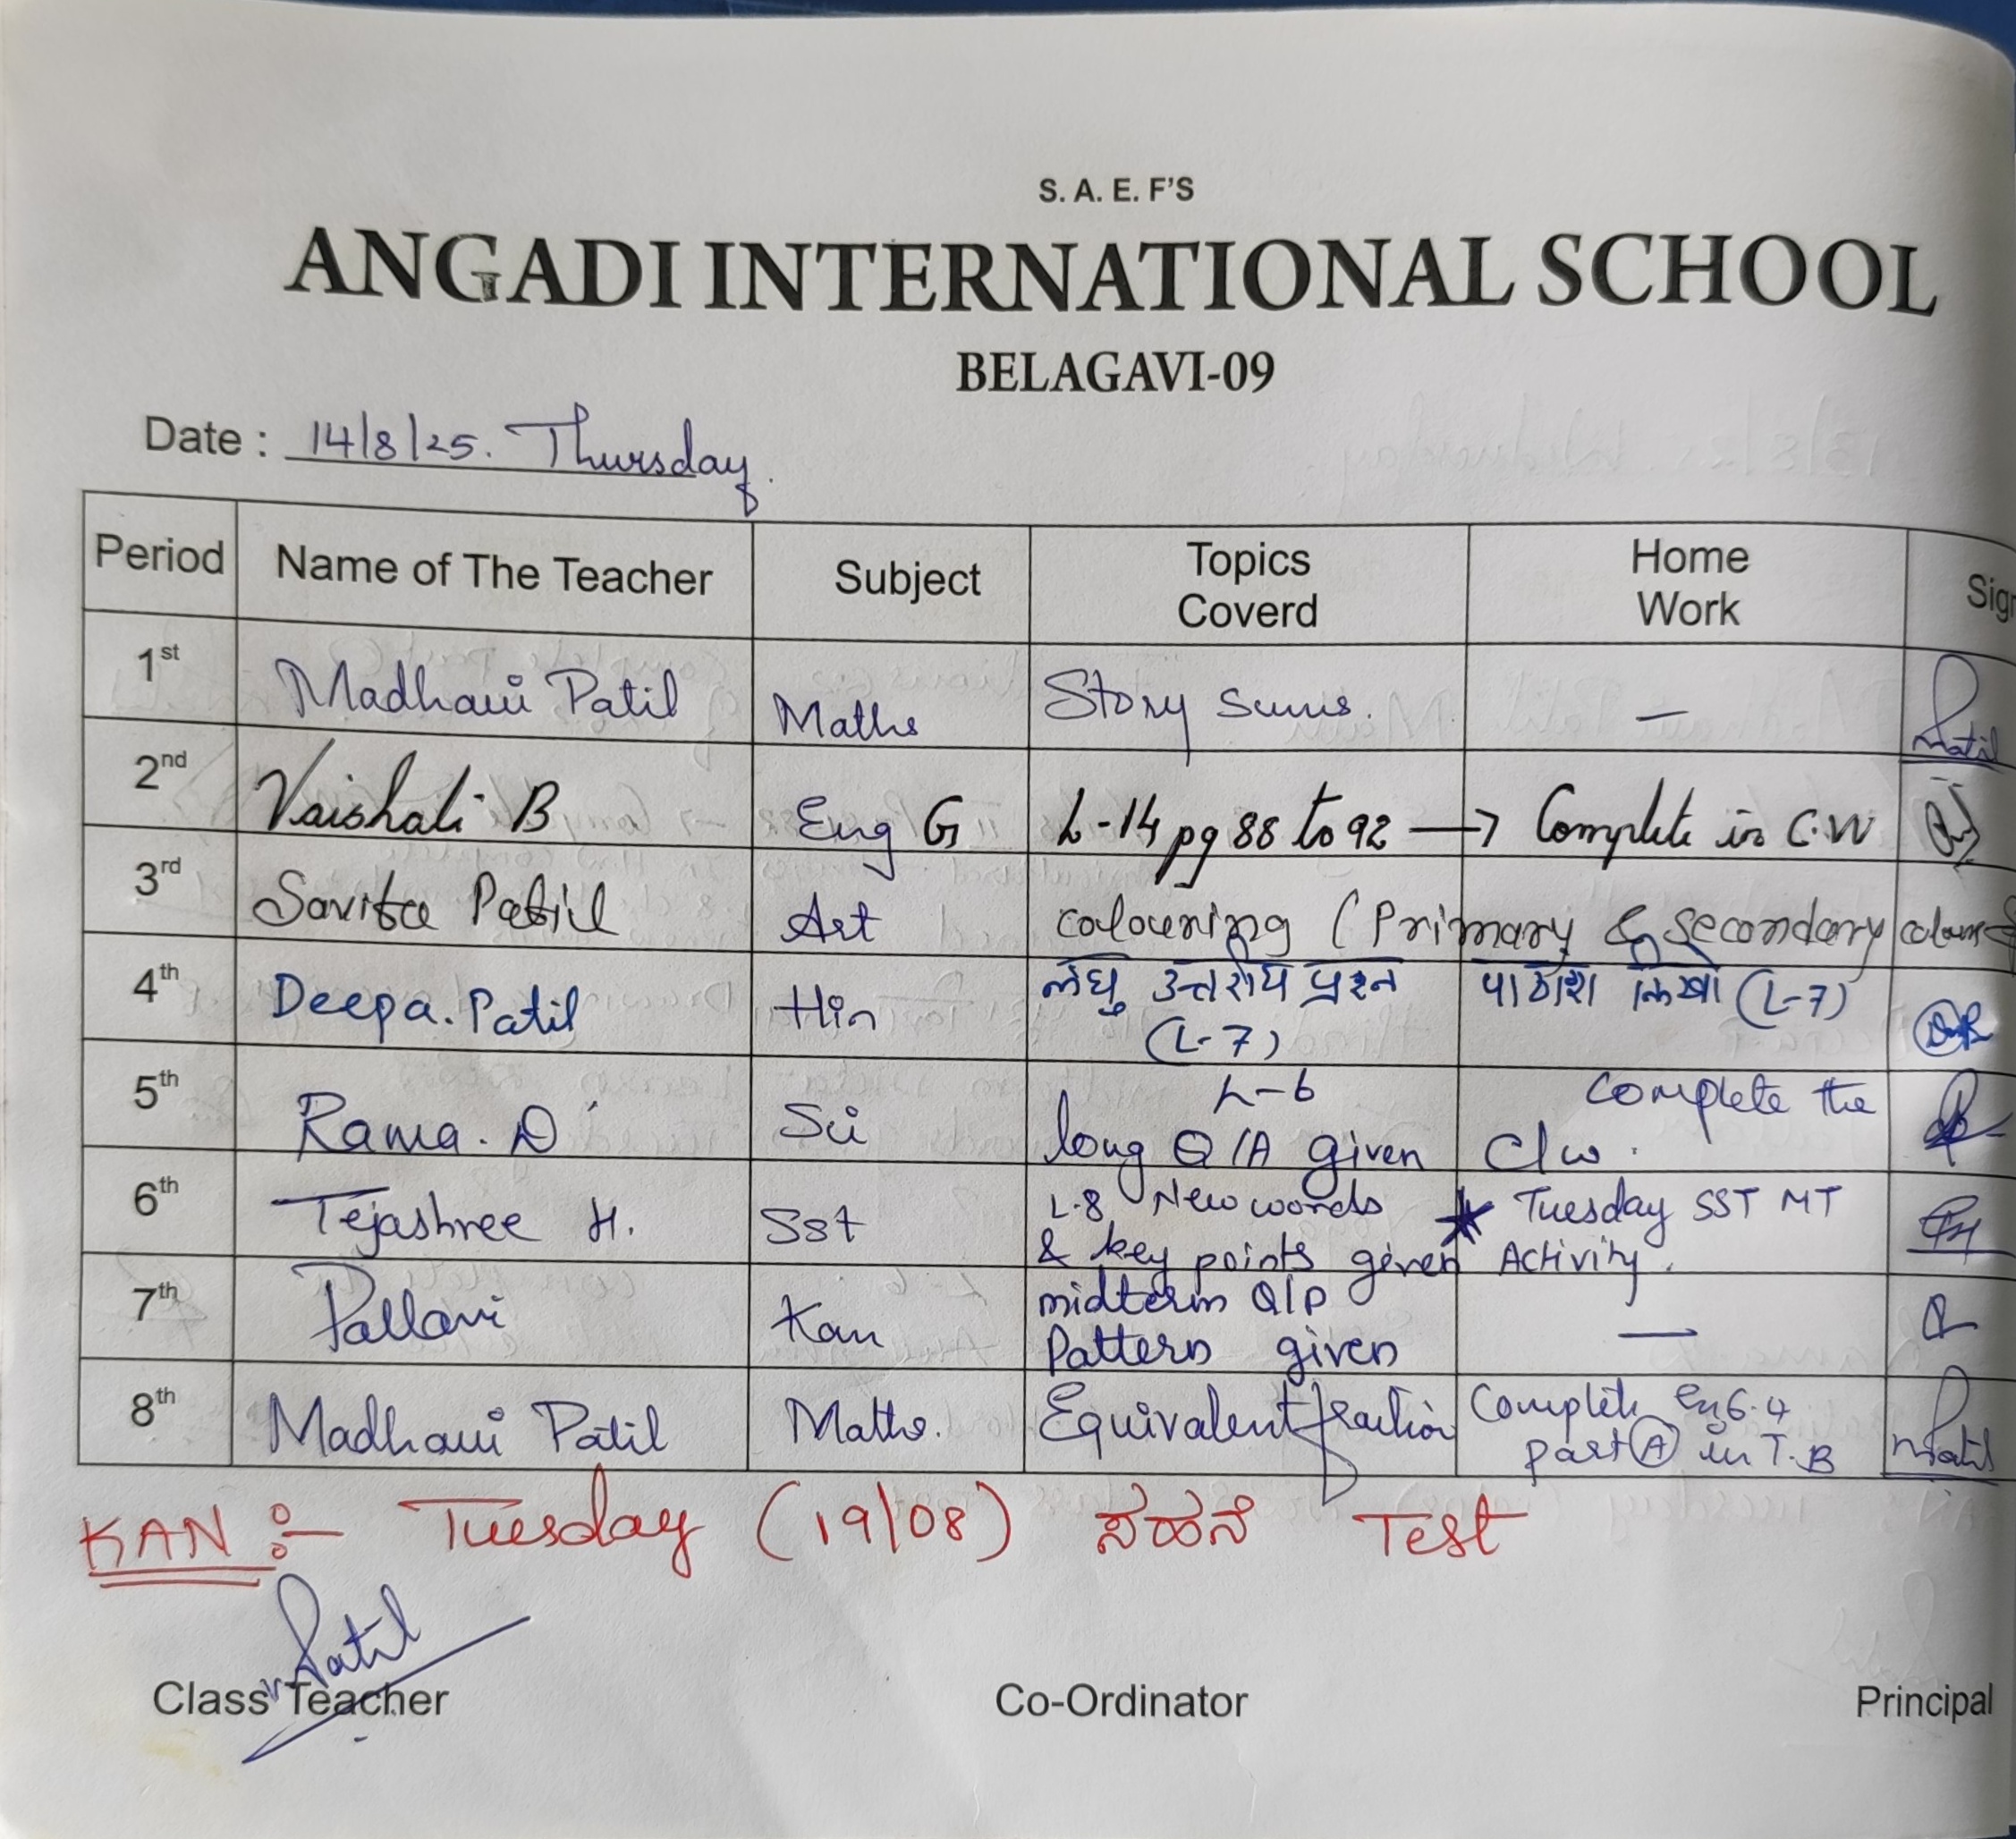 S. A. E. F'S
ANGADI INTERNATIONAL SCHOOL
BELAGAVI-09
Date : 14/8/25. Thursday.
Period Name of The Teacher Subject Topics Coverd Home Work Sign
1st Madhavi Patil Maths Story sums. — Patil
2nd Vaishali B Eng G L-14 pg 88 to 92 → Complete in C.W
3rd Savita Patil Art colouring (Primary & Secondary colours)
4th Deepa. Patil Hin लघु उत्तरीय प्रश्न (L-7) पाठांश लिखो (L-7)
5th Rama. D Sci L-6 long Q/A given Complete the C/w.
6th Tejashree H. Sst L.8 New words & key points given * Tuesday SST MT Activity.
7th Pallavi Kan midterm Q/P Pattern given —
8th Madhavi Patil Maths. Equivalent fraction Complete Ex 6.4 part (A) in T.B Patil
KAN :- Tuesday (19/08) Test
Patil
Class Teacher Co-Ordinator Principal